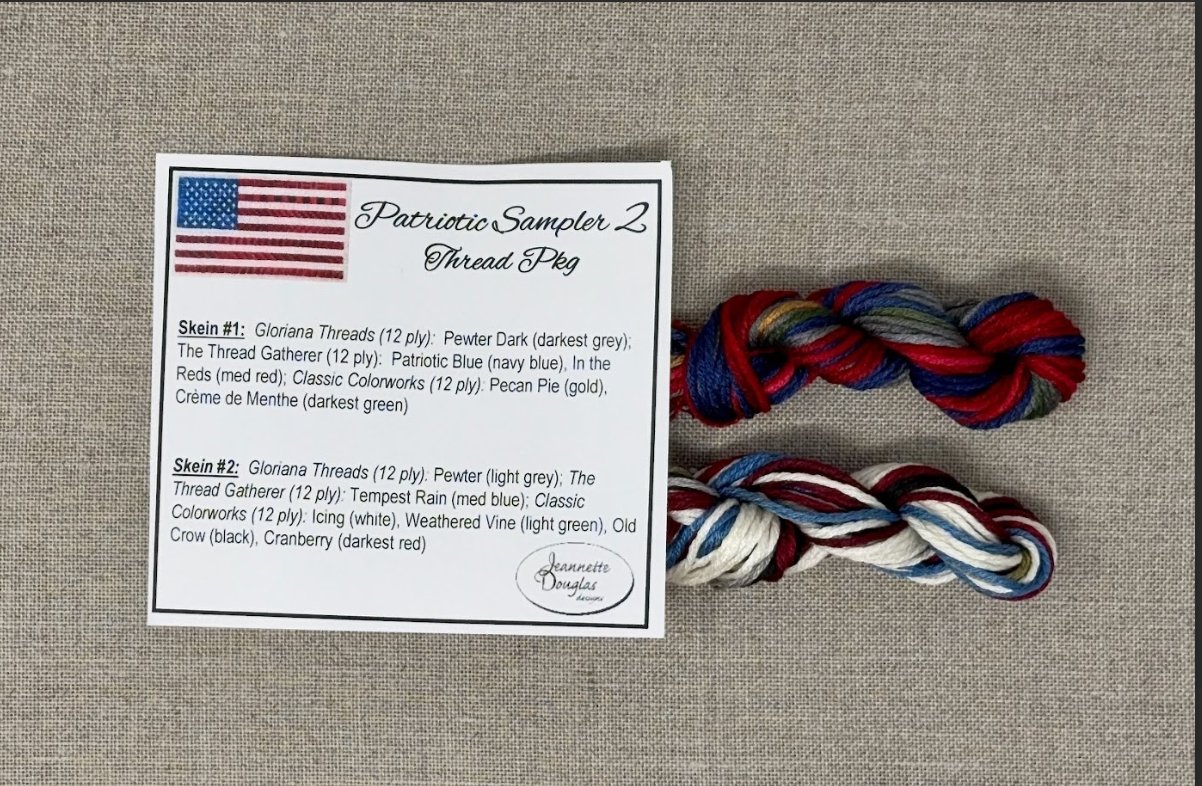 Patriotic Sampler 2
Thread Pkg
Skein #1: Gloriana Threads (12 ply): Pewter Dark (darkest grey);
The Thread Gatherer (12 ply): Patriotic Blue (navy blue), In the
Reds (med red); Classic Colorworks (12 ply): Pecan Pie (gold),
Crème de Menthe (darkest green)
Skein #2: Gloriana Threads (12 ply): Pewter (light grey); The
Thread Gatherer (12 ply): Tempest Rain (med blue); Classic
Colorworks (12 ply): Icing (white), Weathered Vine (light green), Old
Crow (black), Cranberry (darkest red)
Jeannette
Douglas
designs